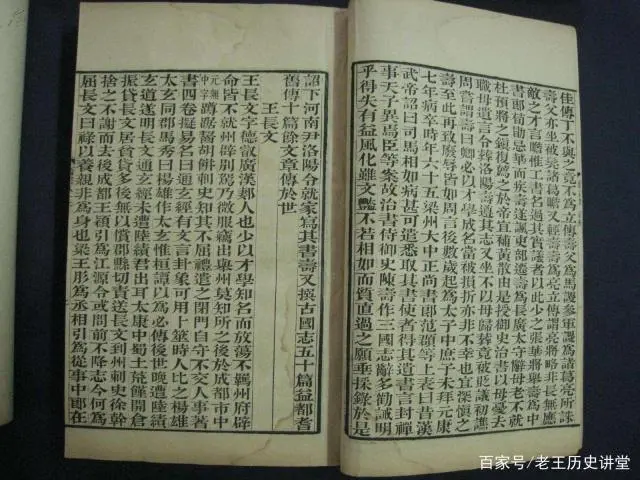 佳傳丁不與之竟不爲立傳壽父爲馬謖參軍謖爲諸葛亮所誅
壽父亦坐被髡諸葛瞻又輕壽壽爲亮立傳謂亮將略非長無應
敵之才言瞻惟工書名過其實議者以此少之張華將舉壽爲中
書郎荀勖忌華而疾壽遂諷吏部遷壽爲長廣太守辭母老不就
杜預將之鎮復薦之於帝宜補黃散由是授御史治書以母憂去
職母遺言令葬洛陽壽遵其志又坐不以母歸葬竟被貶議初譙
周嘗謂壽曰卿必以才學成名當被損折亦非不幸也宜深慎之
壽至此再致廢辱皆如周言後數歲起爲太子中庶子未拜元康
七年病卒時年六十五梁州大中正尚書郎范頵等上表曰昔漢
武帝詔曰司馬相如病甚可遣悉取其書使者得其遺書言封禪
事天子異焉臣等案故治書侍御史陳壽作三國志辭多勸誡明
乎得失有益風化雖文豔不若相如而質直過之願垂採錄於是
詔下河南尹洛陽令就家寫其書壽又撰古國志五十篇益都耆
舊傳十篇餘文章傳於世
王長文
王長文字德叡廣漢郪人也少以才學知名而放蕩不羈州府辟
命皆不就州辟別駕乃微服竊出舉州莫知所之後於成都市中
元無中字蹲踞齧胡餅刺史知其不屈禮遣之閉門自守不交人事著
書四卷擬易名曰通玄經有文言卦象可用卜筮時人比之楊雄
太玄同郡馬秀曰楊雄作太玄惟桓譚以爲必傳後世晚遭陸績
玄道遂明長文通玄經未遭陸績君出耳太康中蜀土荒饉開倉
振貸長文居貧貸多後無以償郡縣切責送長文到州刺史徐幹
捨之不謝而去後成都王穎引爲江源令或問前不降志今何爲
屈長文曰祿以養親非爲身也梁王肜爲丞相引爲從事中郎在
百家号/老王历史讲堂